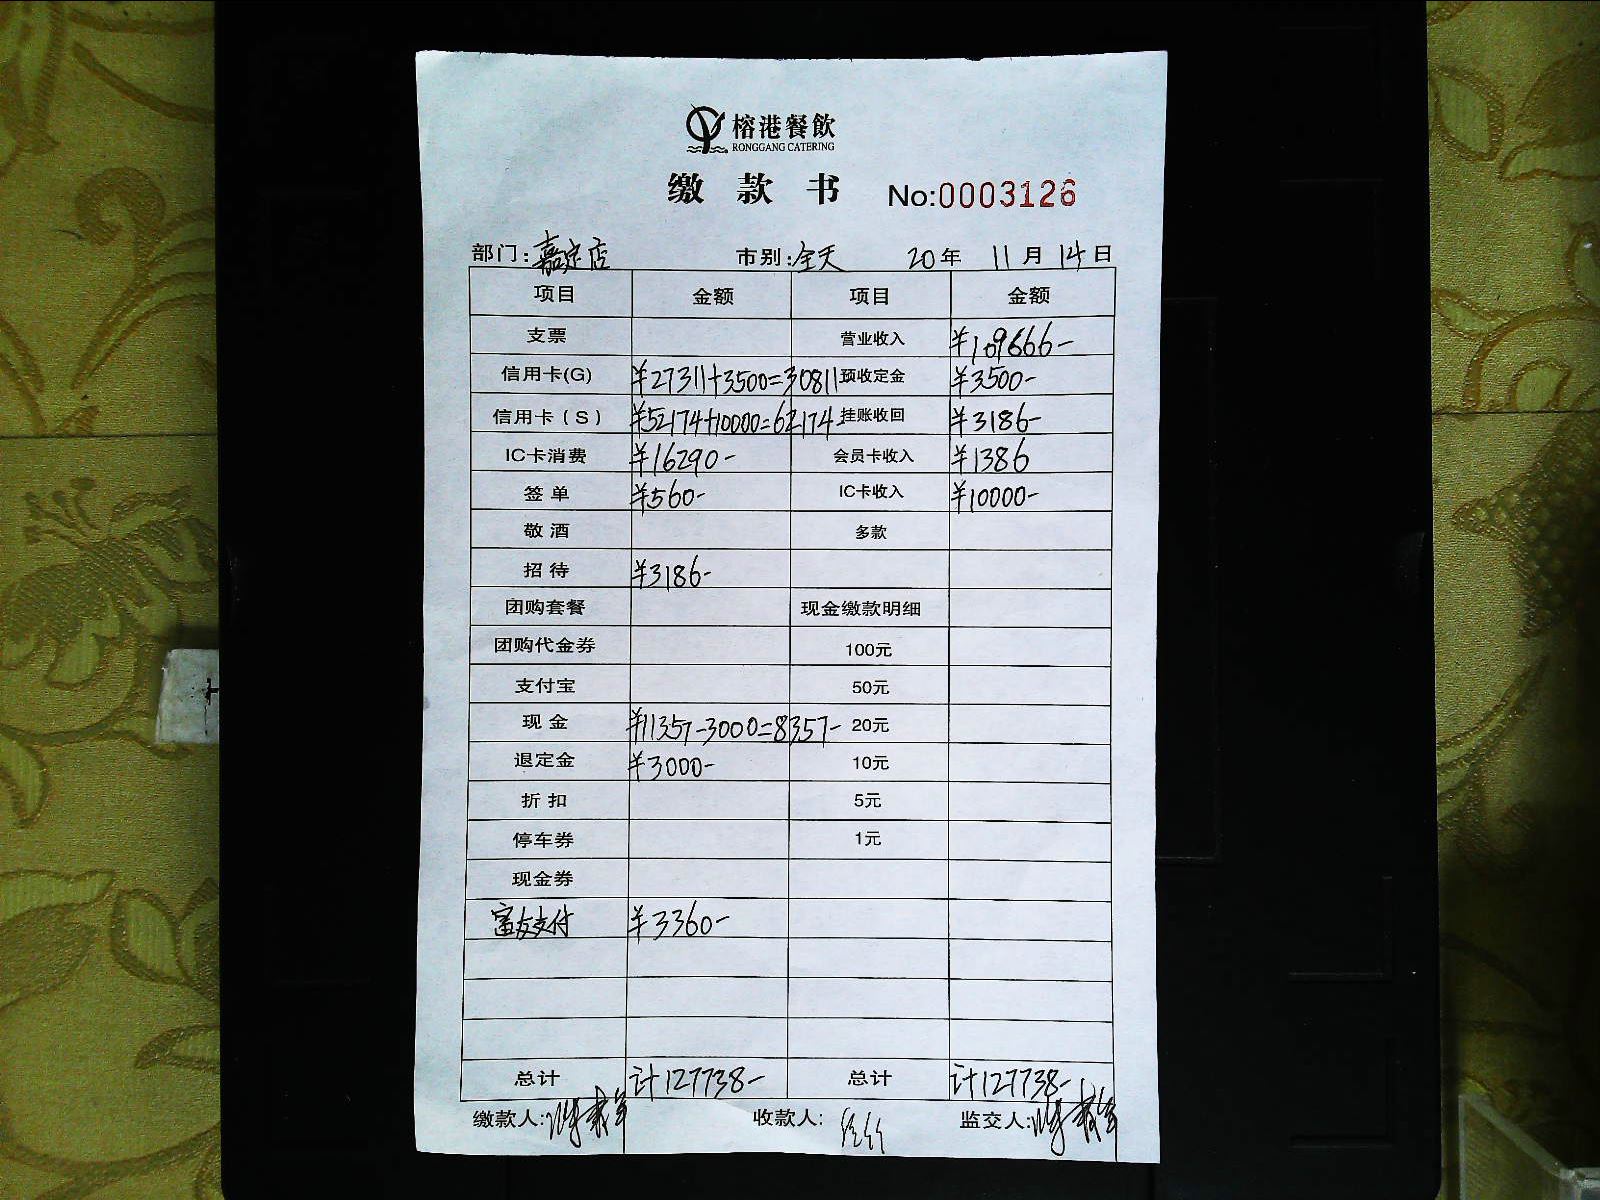 榕港餐飲
RONGGANG CATERING
缴款书 No:0003126
部门:嘉定店 市别:全天 20年 11月 14日
项目 金额 项目 金额
支票 营业收入 ¥109666-
信用卡(G) ¥27311+3500=30811 预收定金 ¥3500-
信用卡(S) ¥52174+10000=62174- 挂账收回 ¥3186-
IC卡消费 ¥16290- 会员卡收入 ¥1386
签单 ¥560- IC卡收入 ¥10000-
敬酒 多款
招待 ¥3186-
团购套餐 现金缴款明细
团购代金券 100元
支付宝 50元
现金 ¥11357-3000=8357- 20元
退定金 ¥3000- 10元
折扣 5元
停车券 1元
现金券
富友支付 ¥3360-
总计 计127738- 总计 计127738-
缴款人: 收款人: 监交人: